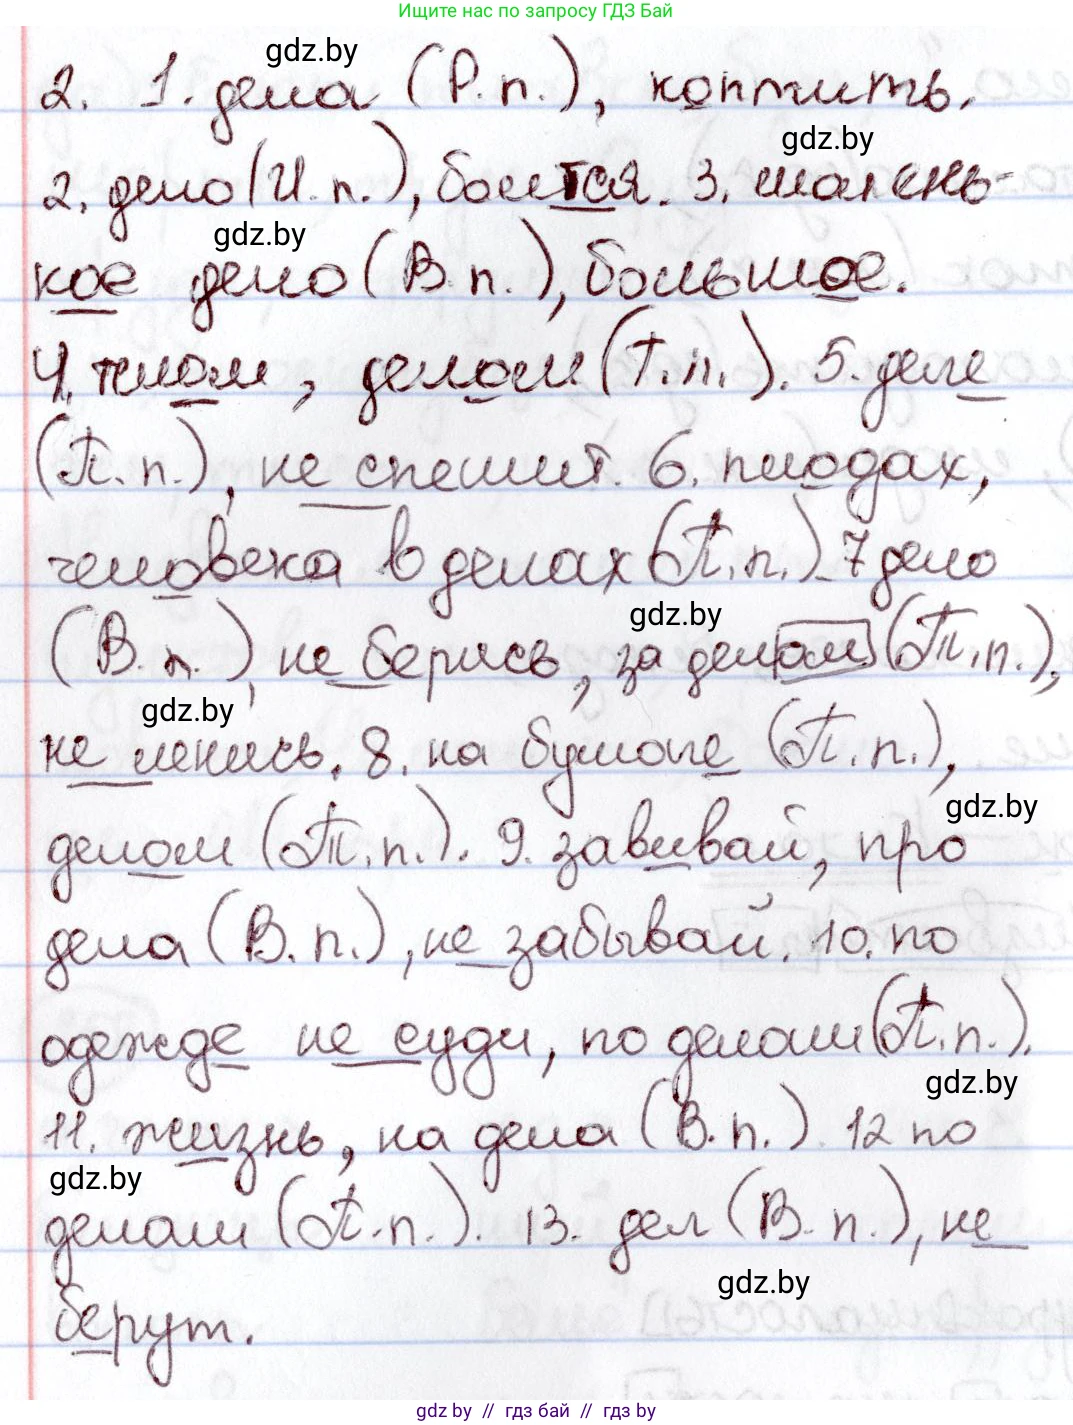 Ищите нас по запросу ГДЗ Бай
gdz.by
2. 1. дела (Р. п.), коптить.
gdz.by
2. дело (И. п.), боится. 3. малень-
gdz.by
кое дело (В. п.), большое.
4. телом, делом (Т. п.). 5. деле
(П. п.), не спешит. 6. плодах,
человека в делах (П. п.). 7 дело
gdz.by
(В. п.), не берись, за делом (Т. п.),
gdz.by
не ленись. 8. на бумаге (П. п.),
gdz.by
делом (Т. п.). 9. завивай, про
дела (В. п.), не забывай. 10. по
одежде не суди, по делам (П. п.).
gdz.by
11. жизнь, на дела (В. п.) 12 по
gdz.by
делам (П. п.). 13. дел (В. п.), не
gdz.by
берут.
gdz by // гдз бай // gdz by